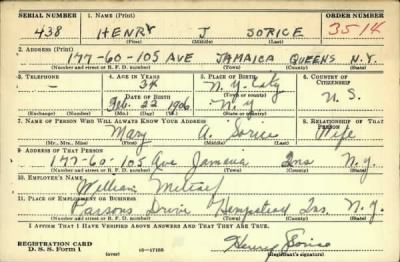 SERIAL NUMBER 1. NAME (Print) ORDER NUMBER
438 HENRY J SORICE 3514
(First) (Middle) (Last)
2. ADDRESS (Print)
177-60-105 AVE JAMAICA QUEENS N.Y.
(Number and street or R. F. D. number) (Town) (County) (State)
3. TELEPHONE 4. AGE IN YEARS 5. PLACE OF BIRTH 6. COUNTRY OF CITIZENSHIP
— 34 N.Y. City
DATE OF BIRTH (Town or county)
Feb. 22 1906 N.Y U.S.
(Exchange) (Number) (Mo.) (Day) (Yr.) (State or country)
7. NAME OF PERSON WHO WILL ALWAYS KNOW YOUR ADDRESS 8. RELATIONSHIP OF THAT PERSON
Mary A. Sorice Wife
(Mr., Mrs., Miss) (First) (Middle) (Last)
9. ADDRESS OF THAT PERSON
177-60-105 Ave Jamaica Qns N.Y.
(Number and street or R. F. D. number) (Town) (County) (State)
10. EMPLOYER'S NAME
William
11. PLACE OF EMPLOYMENT OR BUSINESS
Parsons Drive Hempstead N.Y.
(Number and street or R. F. D. number) (Town) (County) (State)
I AFFIRM THAT I HAVE VERIFIED ABOVE ANSWERS AND THAT THEY ARE TRUE.
REGISTRATION CARD
D. S. S. Form 1 (over) 16—17105 Henry Sorice
(Registrant's signature)